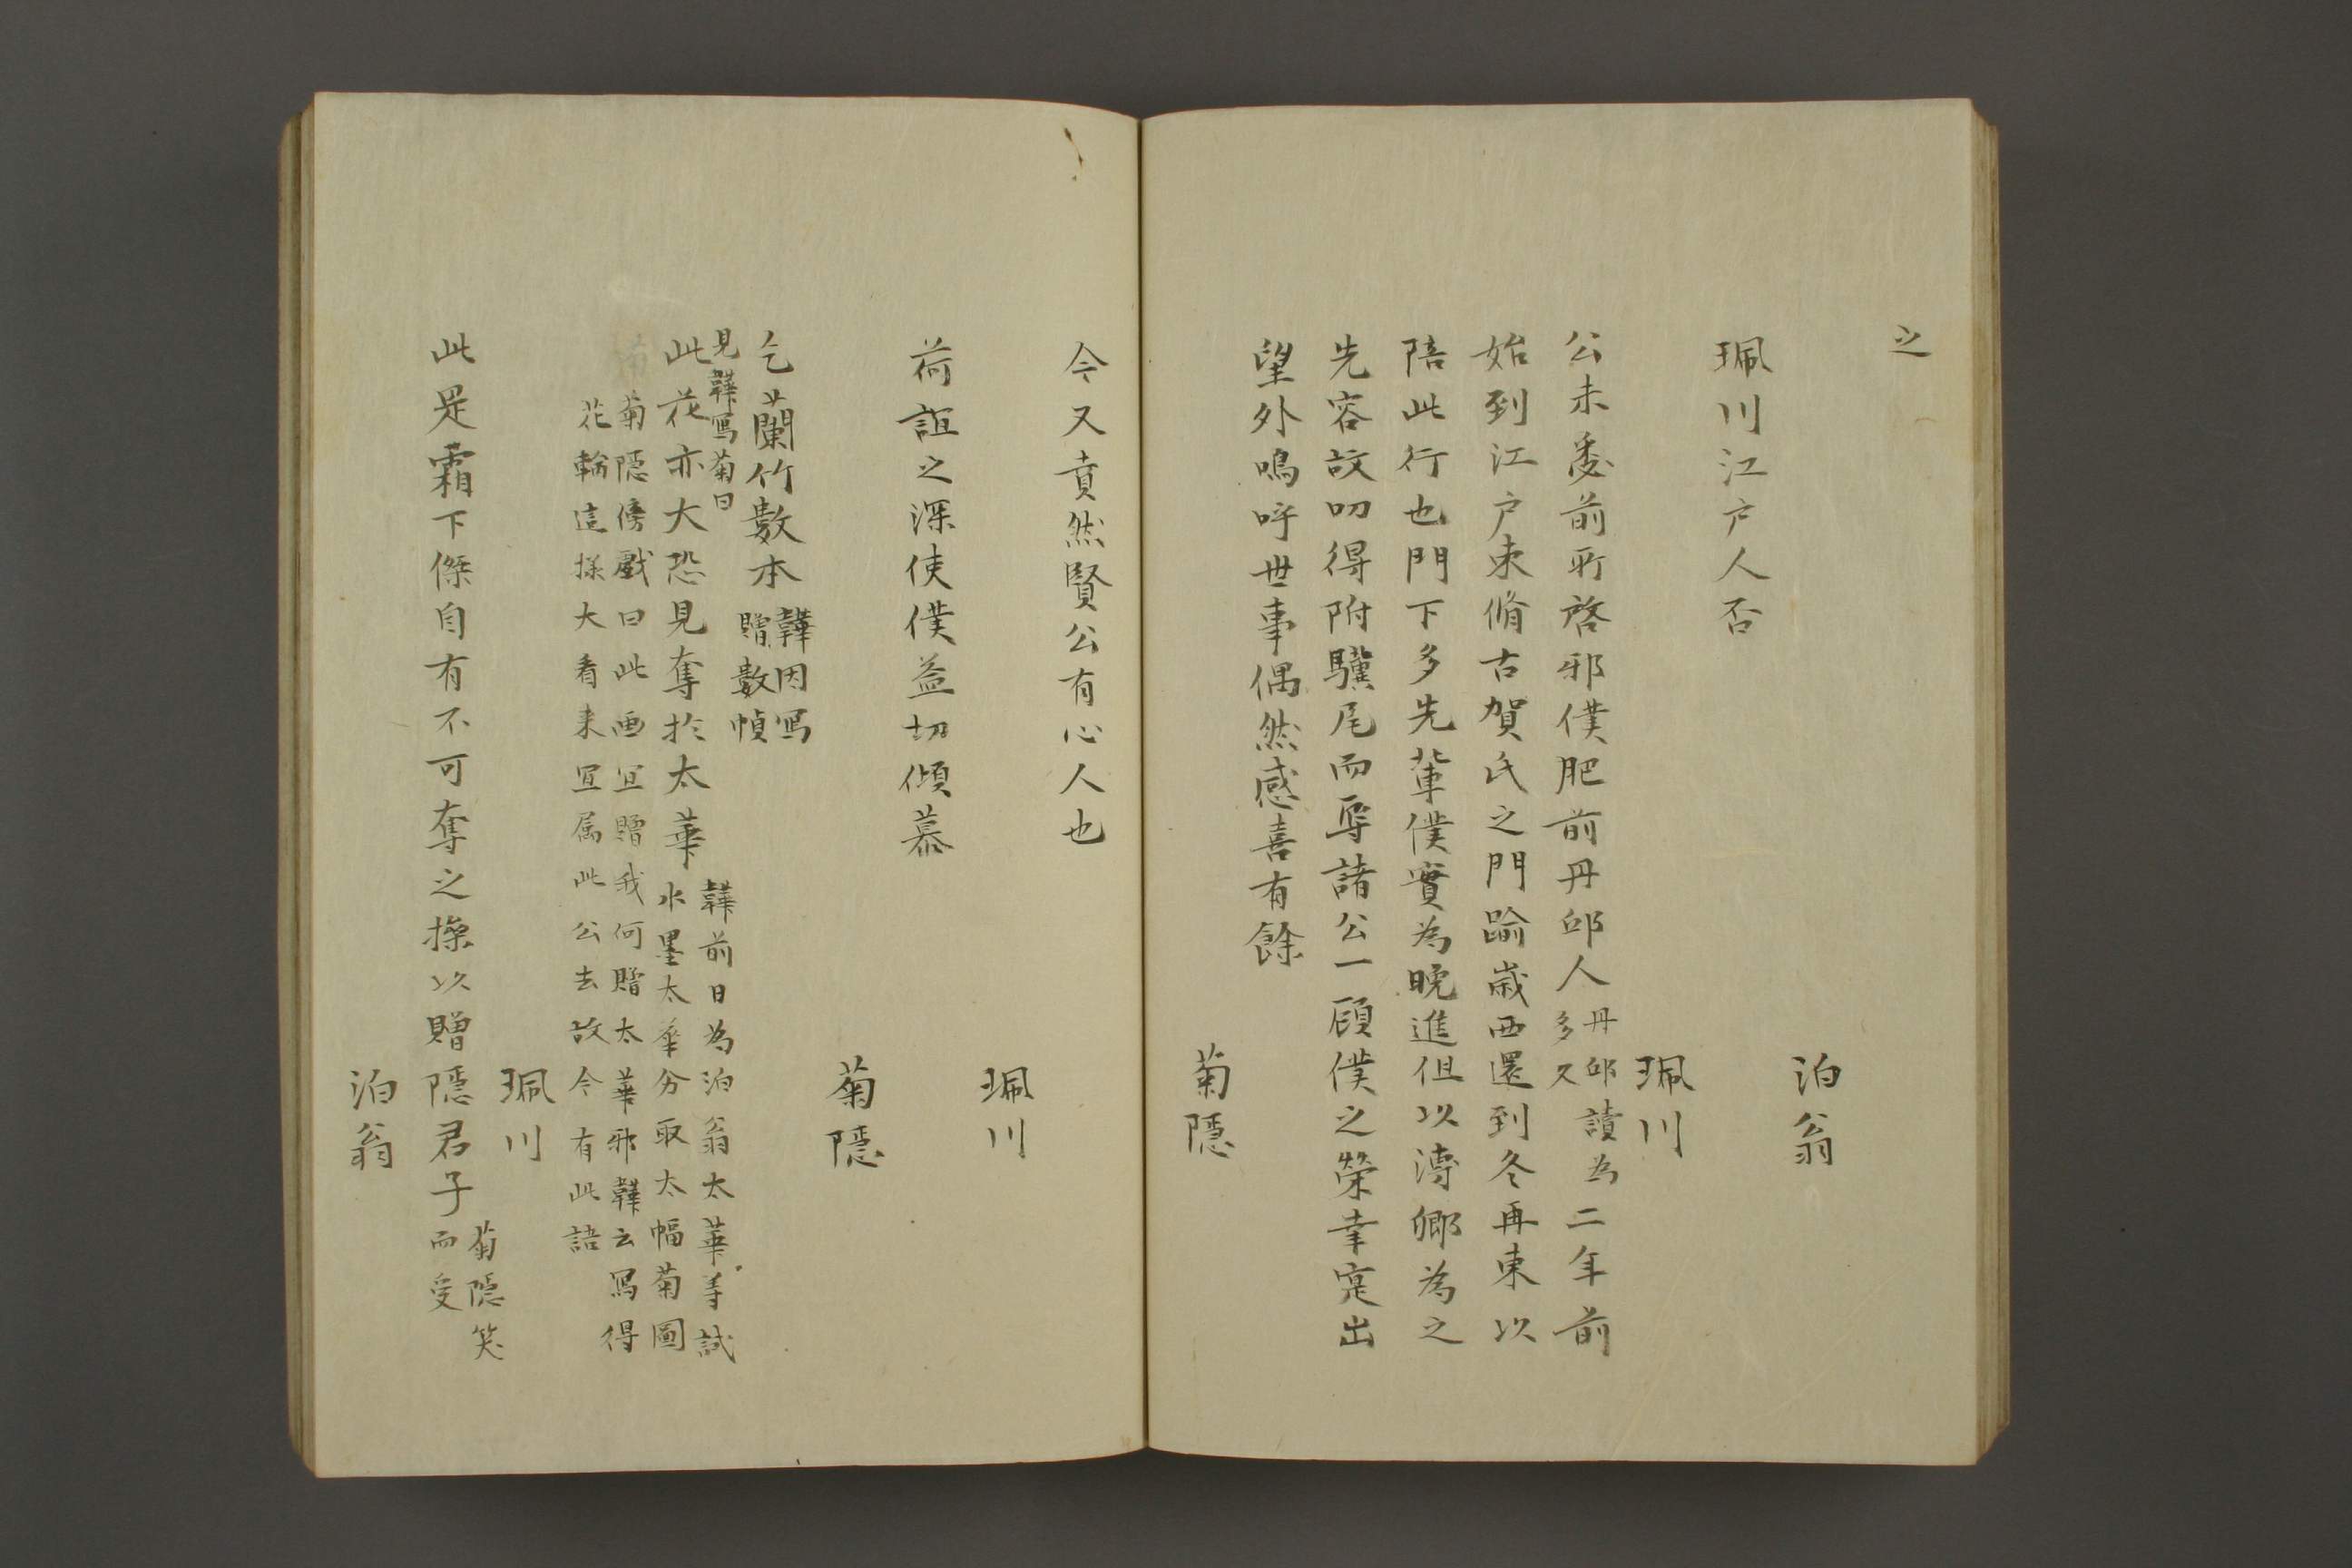 之
泊翁
珮川江户人否
珮川
公未悉前所啓邪僕肥前丹邱人丹邱讀為
多又
二年前
始到江户束脩古賀氏之門踰歲西還到冬再東以
陪此行也門下多先輩僕實為晚進但以濤卿為之
先容故叨得附驥尾而辱諸公一顧僕之榮幸寔出
望外嗚呼世事偶然感喜有餘
菊隱
今又賁然賢公有心人也
珮川
荷詡之深使僕益切傾慕
菊隱
乞蘭竹數本韡因寫
贈數幀
見韡寫菊曰
此花亦大恐見奪於太華韡前日為泊翁太華等試
水墨太華分取太幅菊圖
菊隱傍戲曰此画宜贈我何贈太華邪韡云寫得
花輪這樣大看来宜属此公去故今有此語
珮川
此是霜下傑自有不可奪之操以贈隱君子菊隱笑
而受
泊翁